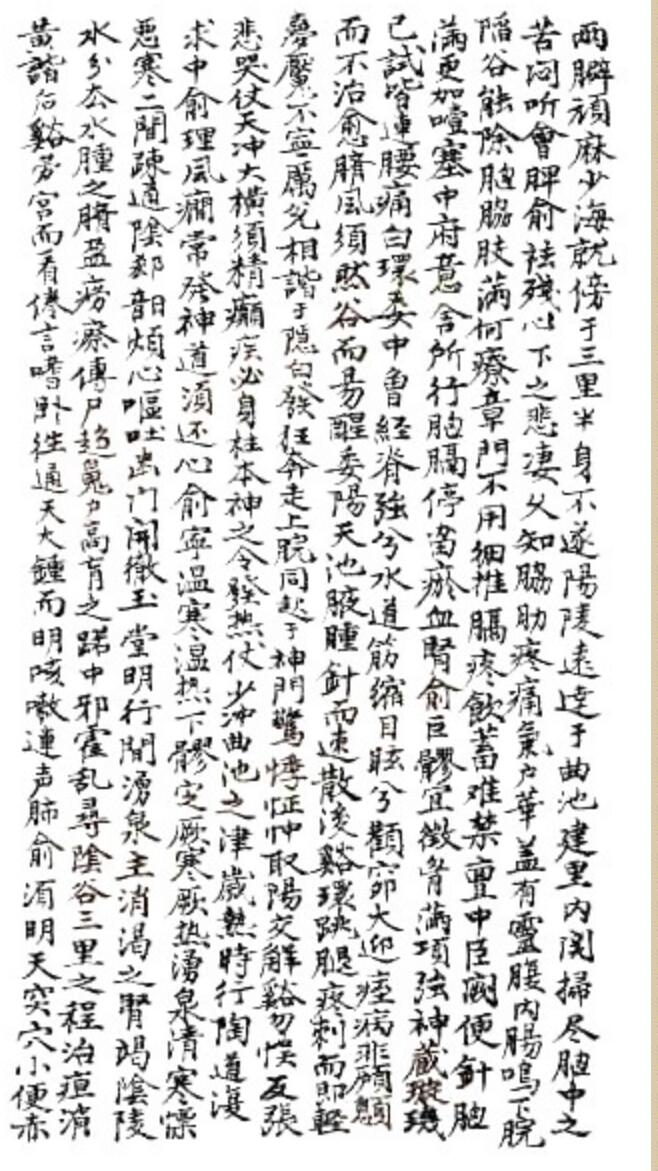 両臂頑麻少海就傍于三里半身不遂陽陵遠達于曲池建里内関掃尽胸中之
苦闷听會脾俞祛殘心下之悲凄久知脇肋疼痛氣户華盖有靈腹内腸鳴下脘
陥谷能除胸脇肢満何療章門不用細推膈疼飲蓄难禁亶中巨闕便針胸
満更加噎塞中府意舎所行胸膈停畄瘀血腎俞巨髎宜徵胷満項強神蔵璇璣
已試皆連腰痛白環委中曾経脊強兮水道筋縮目眩兮顴窌大迎痓病非顱顖
而不治愈臍風須然谷而易醒委陽天池腋腫針而速散後谿環跳腿疼刺而即輕
夢魘不寧厲兊相諧于隐白發狂奔走上脘同起于神門驚悸怔忡取陽交解谿勿悞反張
悲哭仗天冲大横須精癲疾必身柱本神之令發热仗少冲曲池之津歳熱時行陶道復
求中俞理風癇常發神道須还心俞寧温寒温热下髎定厥寒厥热湧泉清寒慄
悪寒二間疎通陰郄韶煩心嘔吐幽门開徹玉堂明行間湧泉主消渇之腎竭陰陵
水分去水腫之臍盈癆瘵傳尸趋魄户膏肓之路中邪霍乱尋陰谷三里之程治疸消
黄諧后谿劳宮而看倦言嗜卧往通天大鍾而明咳嗽連声肺俞須明天突穴小便赤